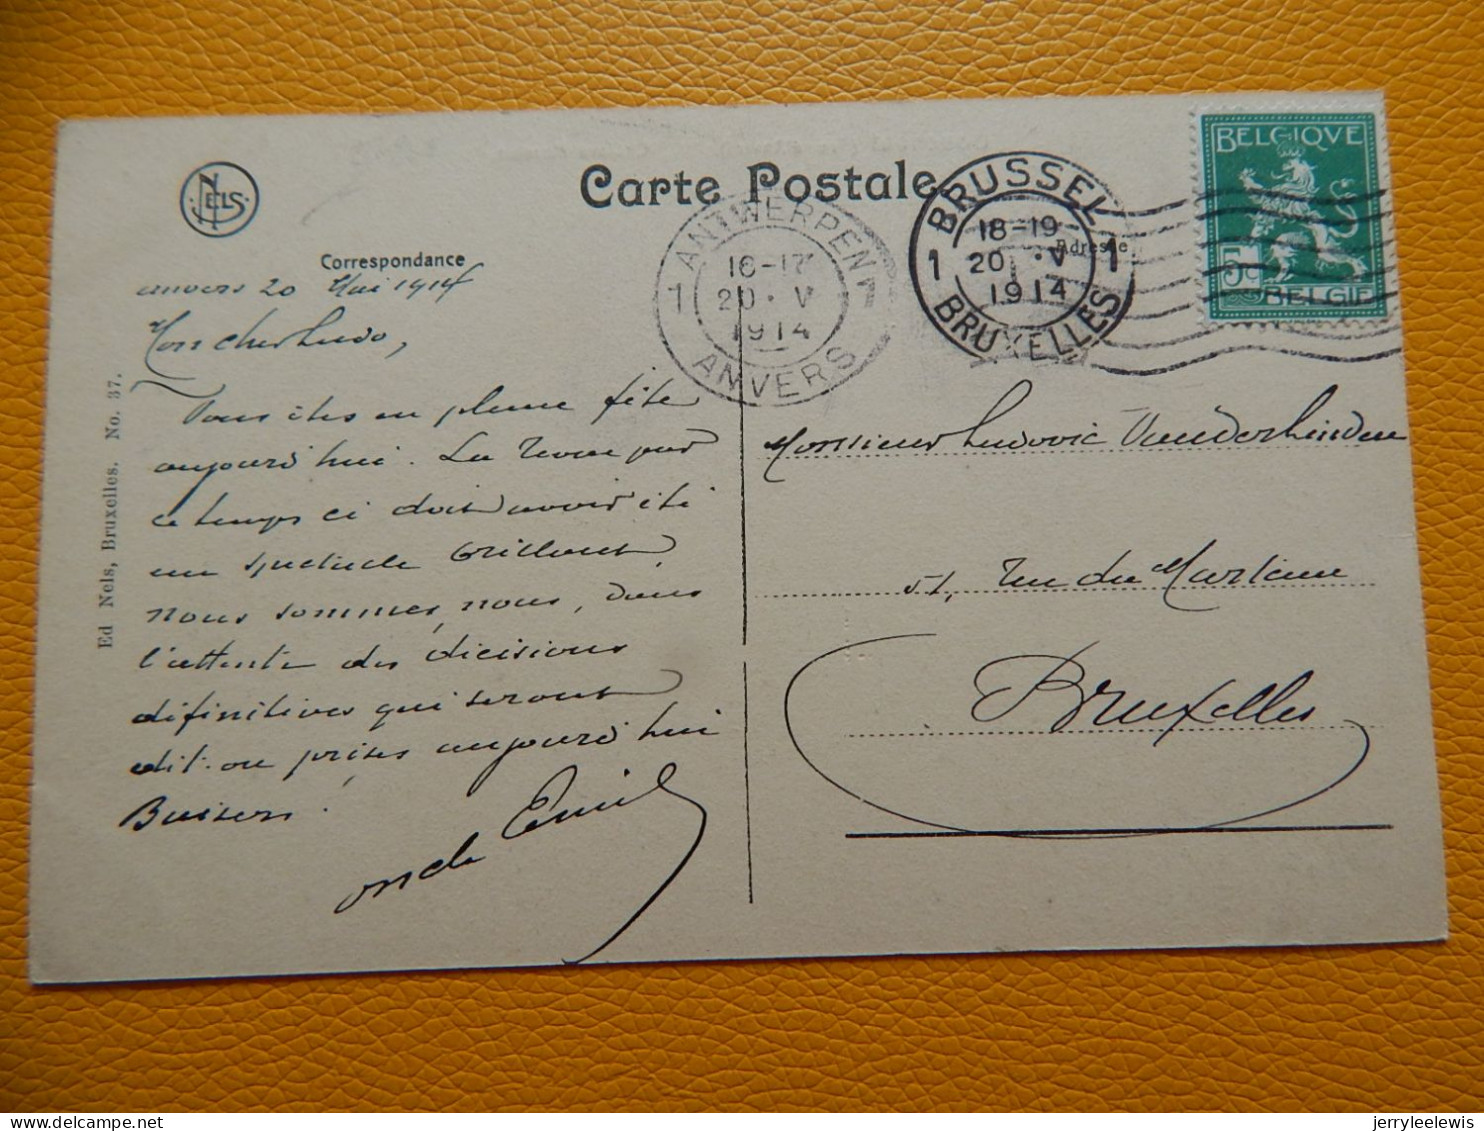 NELS
Carte Postale
Correspondance
Adresse
BELGIQUE
5c
BELGIË
ANTWERPEN
1 16-17 1
20 · V
1914
ANVERS
BRUSSEL
18-19
1 20 · V 1
1914
BRUXELLES
Anvers 20 Mai 1914
Mon cher Ludo,
Vous êtes en pleine fête
aujourd'hui. La revue par
ce temps ci doit avoir été
un spectacle brillant
nous sommes, nous, dans
l'attente des décisions
définitives qui seront
dit-on prises aujourd'hui
Baisers!
oncle Emile
Monsieur Ludovic Vanderlinden
51, rue du Marteau
Bruxelles
Ed Nels, Bruxelles. No. 37.
jerryleelewis